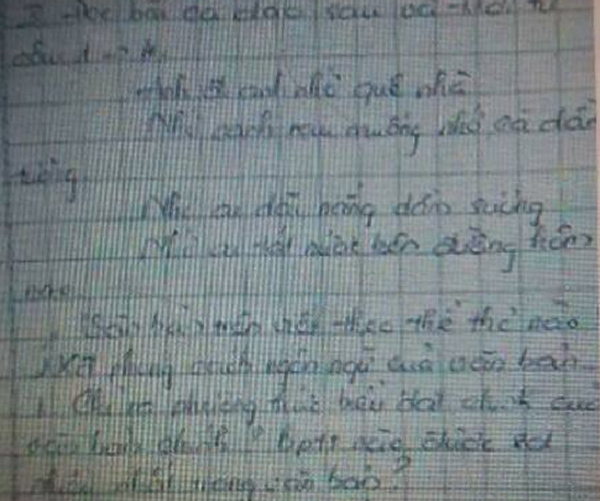 bài ca dao sau và
câu 1 →
Anh đi anh nhớ quê nhà
Nhớ canh rau muống nhớ cà dầm
tương
Nhớ ai dãi nắng dầm sương
Nhớ ai tát nước bên đường hôm
nao
Văn bản trên viết theo thể thơ nào
phong cách ngôn ngữ của văn bản
phương thức biểu đạt chính của
văn bản chính? bptt
nhất trong văn bản?